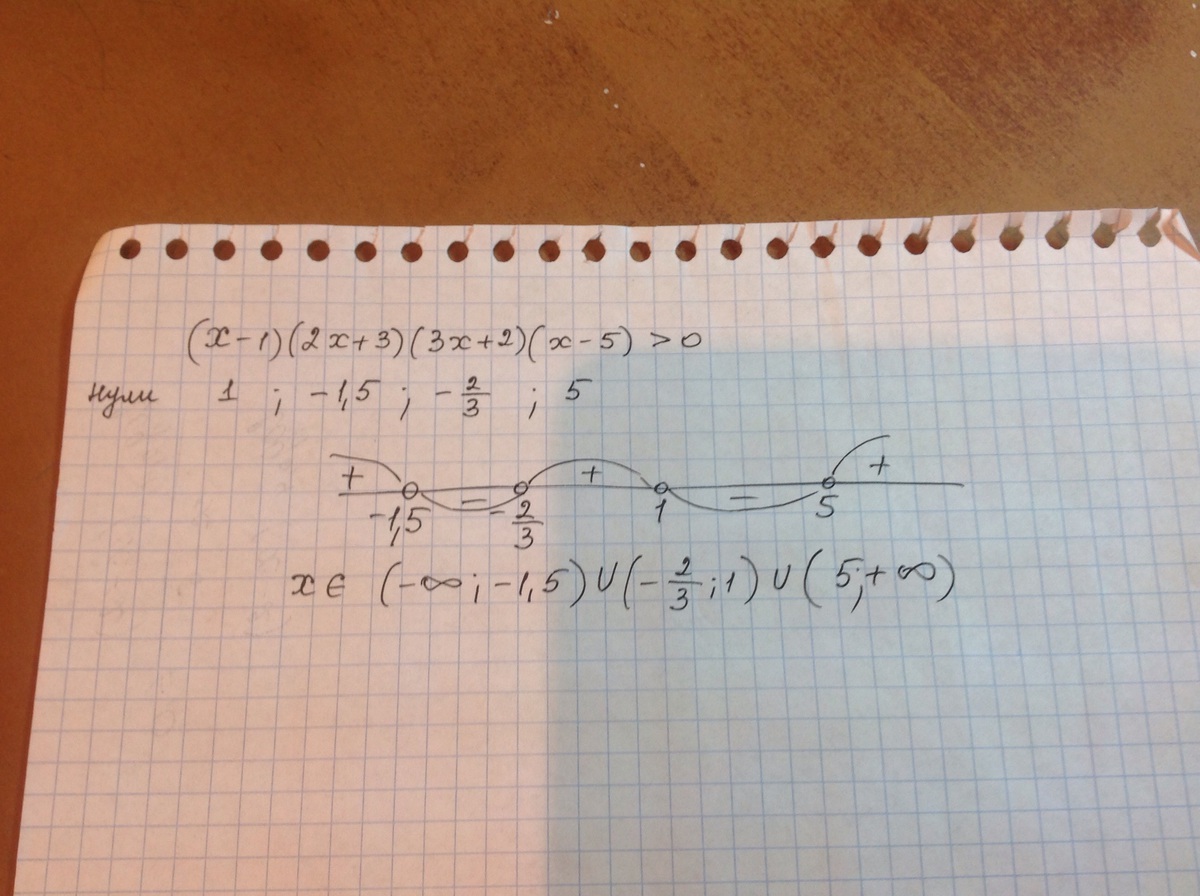 (x-1)(2x+3)(3x+2)(x-5) > 0
нули 1 ; -1,5 ; -2/3 ; 5
+ - + - +
-1,5 -2/3 1 5
x ∈ (-∞; -1,5) ∪ (-2/3; 1) ∪ (5; +∞)